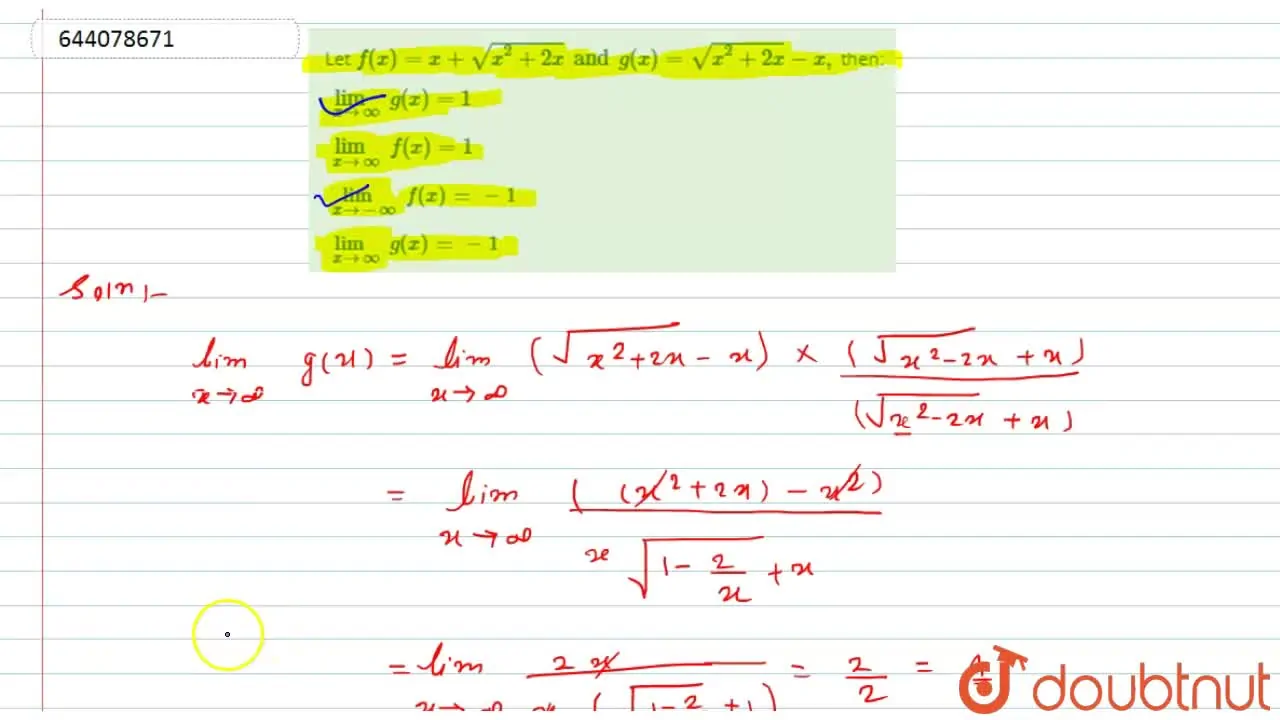 644078671
Let f(x) = x + √(x² + 2x) and g(x) = √(x² + 2x) − x, then:
lim x→∞ g(x) = 1
lim x→∞ f(x) = 1
lim x→−∞ f(x) = − 1
lim x→∞ g(x) = − 1
Soln:-
lim x→∞ g(x) = lim x→∞ (√(x²+2x) − x) × (√(x²−2x) + x) / (√(x²−2x) + x)
= lim x→∞ ((x²+2x) − x²) / (x √(1 − 2/x) + x)
= lim x→∞ 2x / x (√(1−2 +1) = 2/2 =
doubtnut